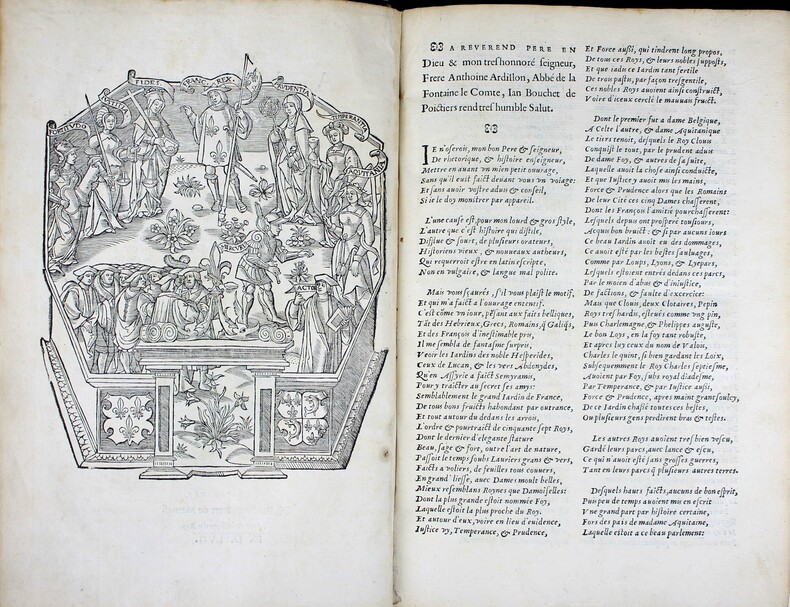 FORTITUDO
IVSTITIA
FIDES
FRANC. REX.
PRVDENTIA
TEMPERANTIA
AQVITANIA
MERCVRI
ACTOR
A REVEREND PERE EN
Dieu & mon treshonnoré seigneur,
Frere Anthoine Ardillon, Abbé de la
Fontaine le Comte, Ian Bouchet de
Poictiers rend tres humble Salut.
IE n'oserois, mon bon Pere & seigneur,
De rhetorique, & histoire enseigneur,
Mettre en auant vn mien petit ouurage,
Sans qu'il eust faict deuant vous vn voiage:
Et sans auoir vostre aduis & conseil,
Si ie le doy monstrer par appareil.
L'vne cause est, pour mon lourd & gros style,
L'autre que c'est histoire qui distile,
Difflue & sourt, de plusieurs orateurs,
Historiens vieux, & nouueaux autheurs,
Qui requerroit estre en latin escripte,
Non en vulgaire, & langue mal polite.
Mais vous sçaurés, s'il vous plaist le motif,
Et qui m'a faict a l'ouurage ententif.
C'est cõme vn iour, pẽsant aux faits belliques,
Tãt des Hebrieux, Grecs, Romains, q̃ Galiqs,
Et des François d'inestimable pris,
Il me sembla de fantasme surpris,
Veoir les Iardins des noble Hesperides,
Ceux de Lucan, & les vers Abdonydes,
Qu'en Assyrie a faict Semyramis,
Pour y traicter au secret ses amys:
Semblablement le grand Iardin de France,
De tous bons fruicts habondant par outrance,
Et tout autour du dedans les arrois,
L'ordre & pourtraict de cinquante sept Roys,
Dont le dernier d'elegante stature
Beau, sage & fort, outre l'art de nature,
Passoit le temps soubs Lauriers grans & vers,
Faicts a voliers, de feuilles tous couuers,
En grand' liesse, auec Dames moult belles,
Mieux resemblans Roynes que Damoiselles:
Dont la plus grande estoit nommée Foy,
Laquelle estoit la plus proche du Roy.
Et autour d'eux, voire en lieu d'euidence,
Iustice vy, Temperance, & Prudence,
Et Force aussi, qui tindrent long propos,
De tous ces Roys, & leurs nobles supposts,
Et que iadis ce Iardin tant fertile
De trois pastis, par façon tresgentile,
Ces nobles Roys auoient ainsi construict,
Voire d'iceux cerclé le mauuais fruict.
Dont le premier fut a dame Belgique,
A Celte l'autre, & dame Aquitanique
Le tiers tenoit, desquels le Roy Clouis
Conquist le tout, par le prudent aduis
De dame Foy, & autres de sa suite,
Laquelle auoit la chose ainsi conduicte,
Et que Iustice y auoit mis les mains,
Force & Prudence alors que les Romains
De leur Cité ces cinq Dames chasserent,
Dont les François l'amitié pourchasserent:
Lesquels depuis ont prosperé tousiours,
Acquis bon bruict: & si par aucuns iours
Ce beau Iardin auoit eu des dommages,
Ce auoit esté par les bestes sauluages,
Comme par Loups, Lyons, & Lyepars,
Lesquels estoient entrés dedans ces parcs,
Par le moien d'abus & d'iniustice,
De factions, & faulte d'exercice:
Mais que Clouis, deux Clotaires, Pepin
Roys tres hardis, esleués comme vng pin,
Puis Charlemagne, & Phelippes auguste,
Le bon Loys, en la foy tant robuste,
Et apres luy ceux du nom de Valois,
Charles le quint, si bien gardant les Loix,
Subsequemment le Roy Charles septiesme,
Auoient par Foy, soubs royal diadesme,
Par Temperance, & par Iustice aussi,
Force & Prudence, apres maint grant soulcy,
De ce Iardin chassé toutes ces bestes,
Ou plusieurs gens perdirent bras & testes.
Les autres Roys auoient tres bien vescu,
Gardé leurs parcs, auec lance & escu,
Ce qui n'auoit esté sans grosses guerres,
Tant en leurs parcs q̃ plusieurs autres terres.
Desquels hauts faicts, aucuns de bon esprit,
Puis peu de temps auoient mis en escrit
Vne grand part par histoire certaine,
Fors des pais de madame Aquitaine,
Laquelle estoit a ce beau parlement: